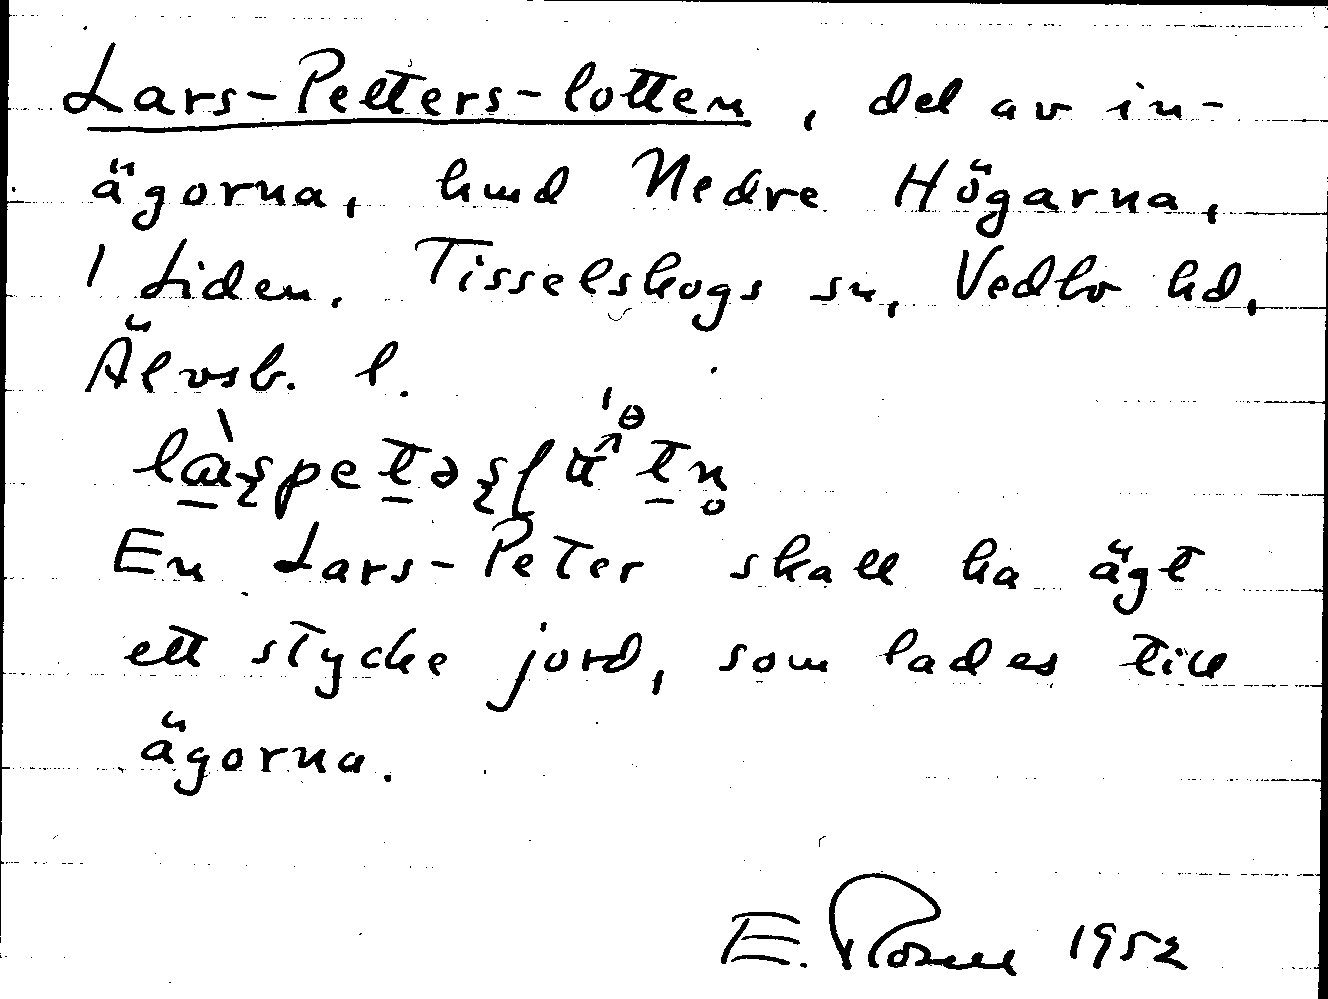 Lars-Petters-lotten, del av in-
ägorna, hmd Nedre Högarna,
1 Liden. Tisselskogs sn, Vedbo hd,
Älvsb. l.
En Lars-Peter skall ha ägt
ett stycke jord, som lades till
ägorna.
E. Rosell 1952